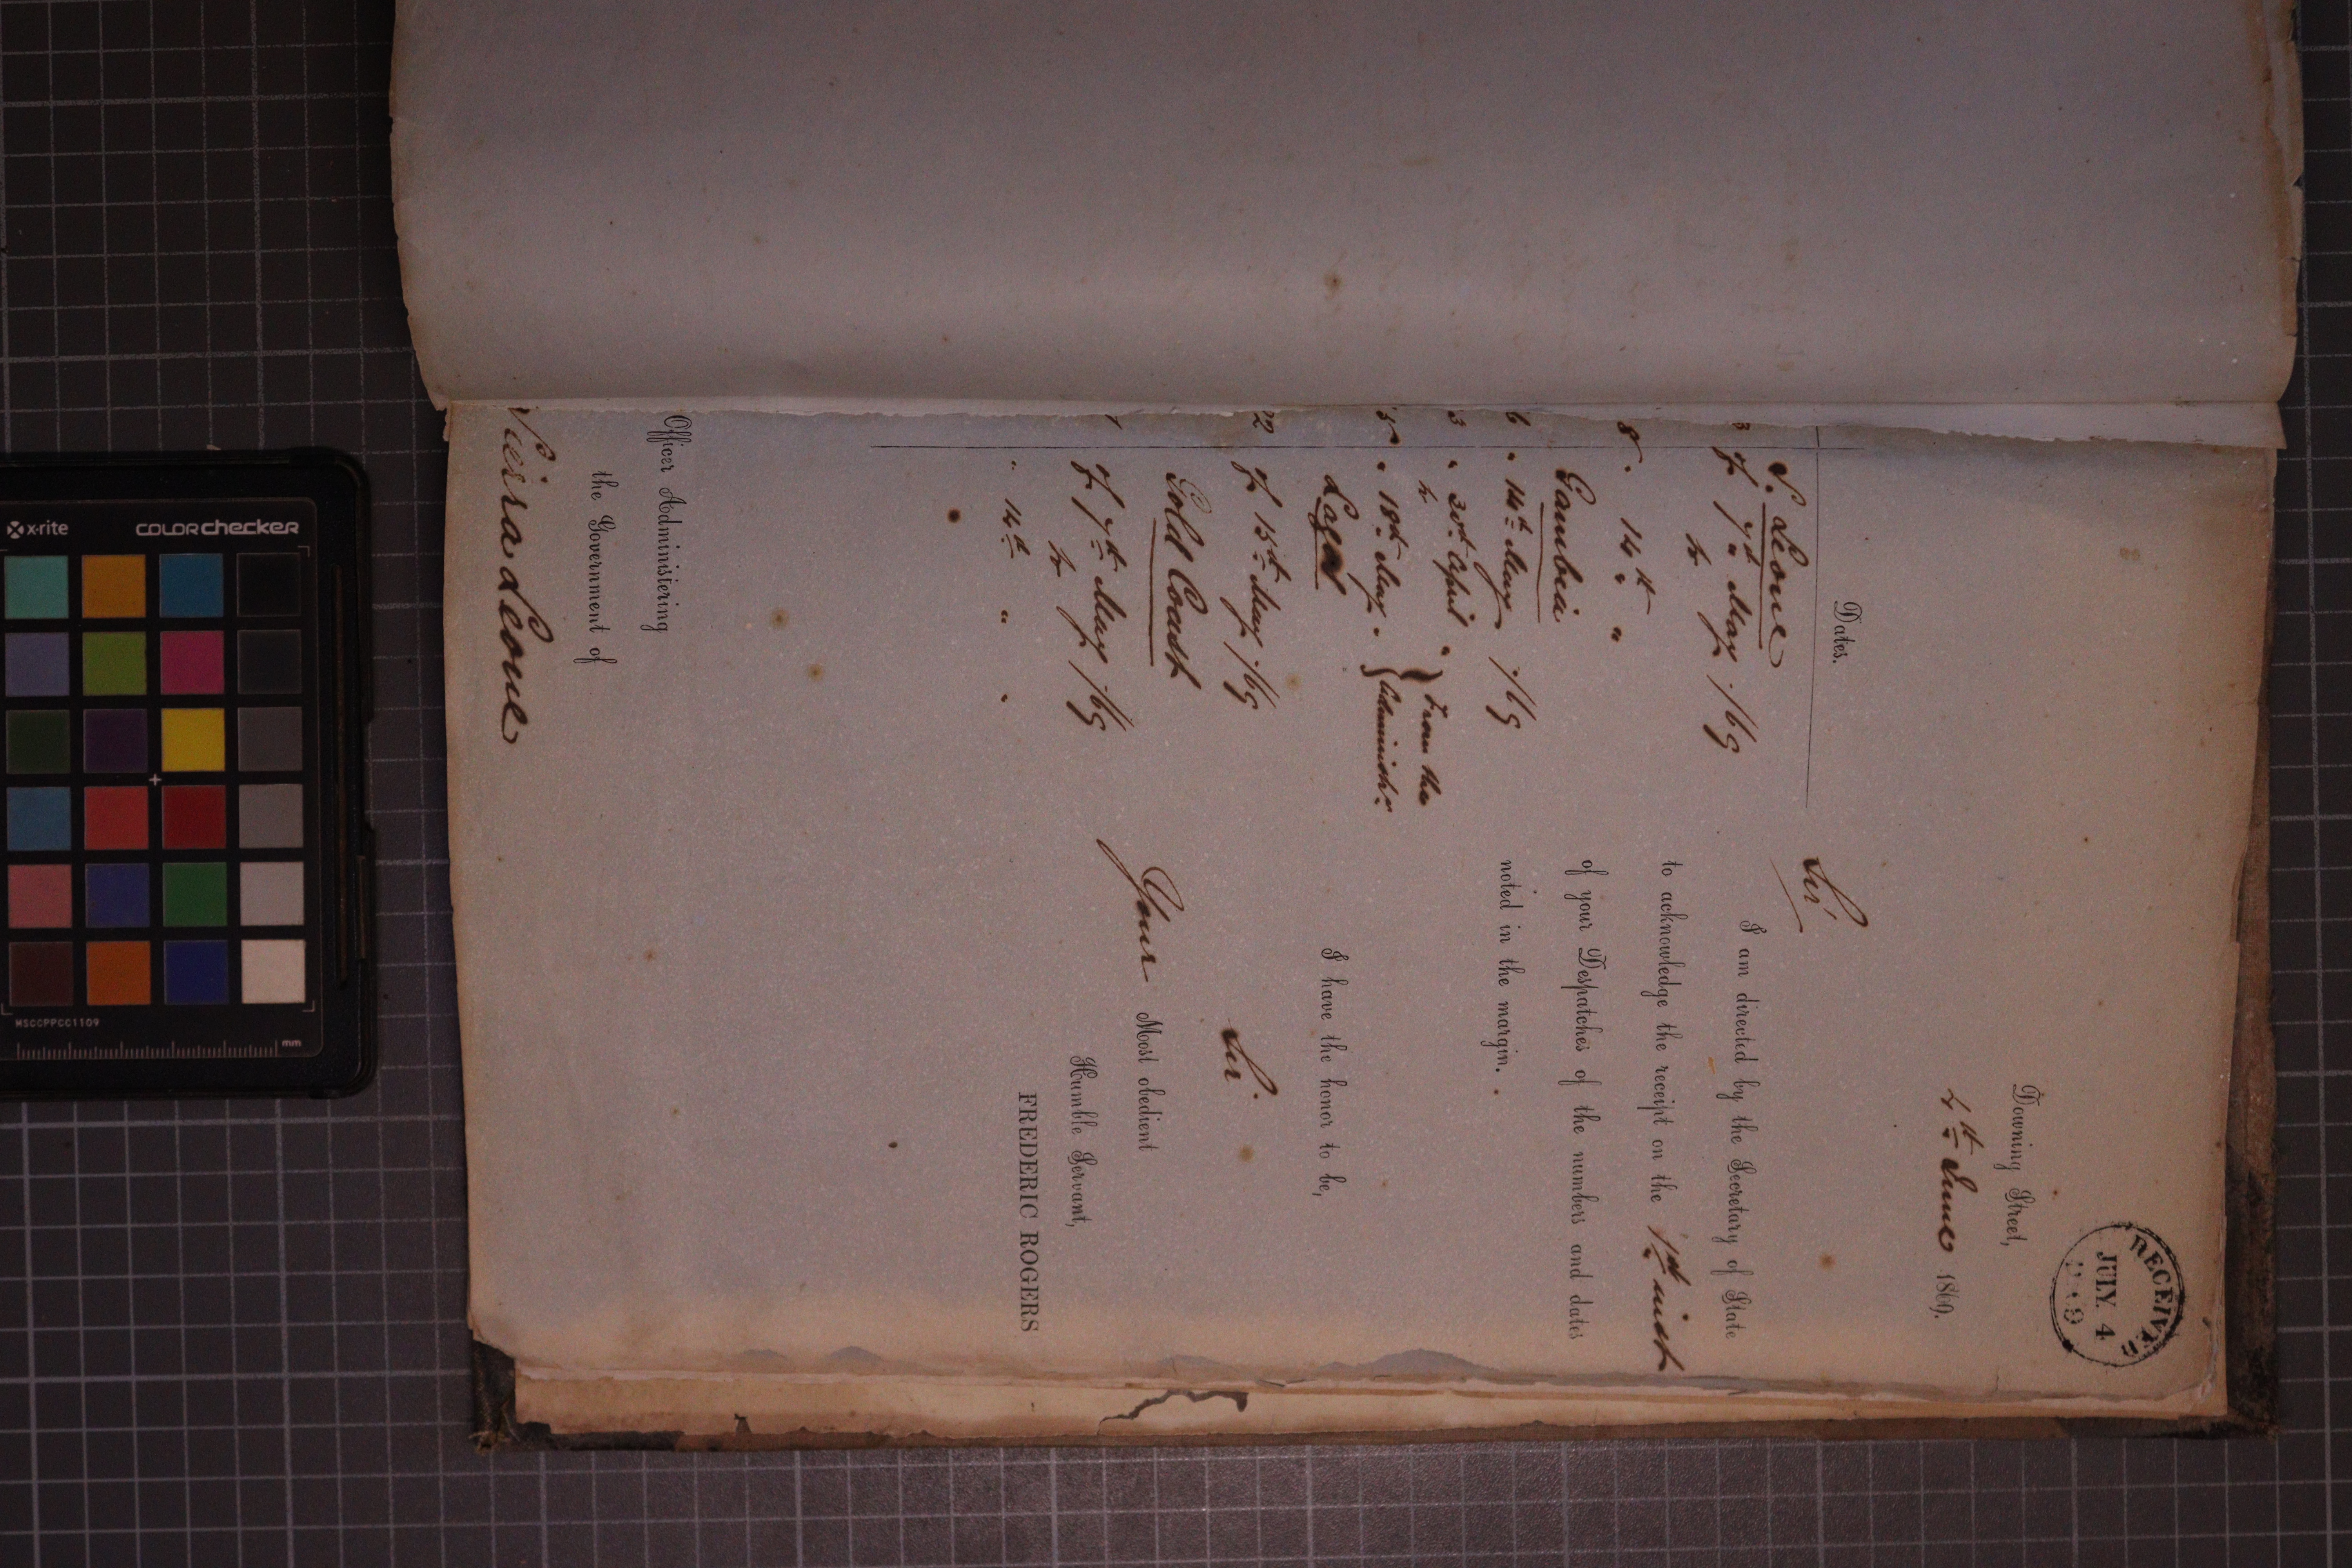 RECEIVED
JULY 4
Downing Street,
4th June 1869.
Dates.
S. Leone
3 of 7th May /69
8 " 14th "
Gambia
6 " 14th May /69
3 " 30th April " } From the
5 " 18th May " } Administr:
Lagos
22 of 15th May /69
Gold Coast
of 7th May /69
" 14th " "
Sir
I am directed by the Secretary of State
to acknowledge the receipt on the 1st inst
of your Despatches of the numbers and dates
noted in the margin.
I have the honor to be,
Sir.
Your Most obedient
Humble Servant,
FREDERIC ROGERS
Officer Administering
the Government of
Sierra Leone
x-rite
colorchecker
MSCCPPCC1109
mm